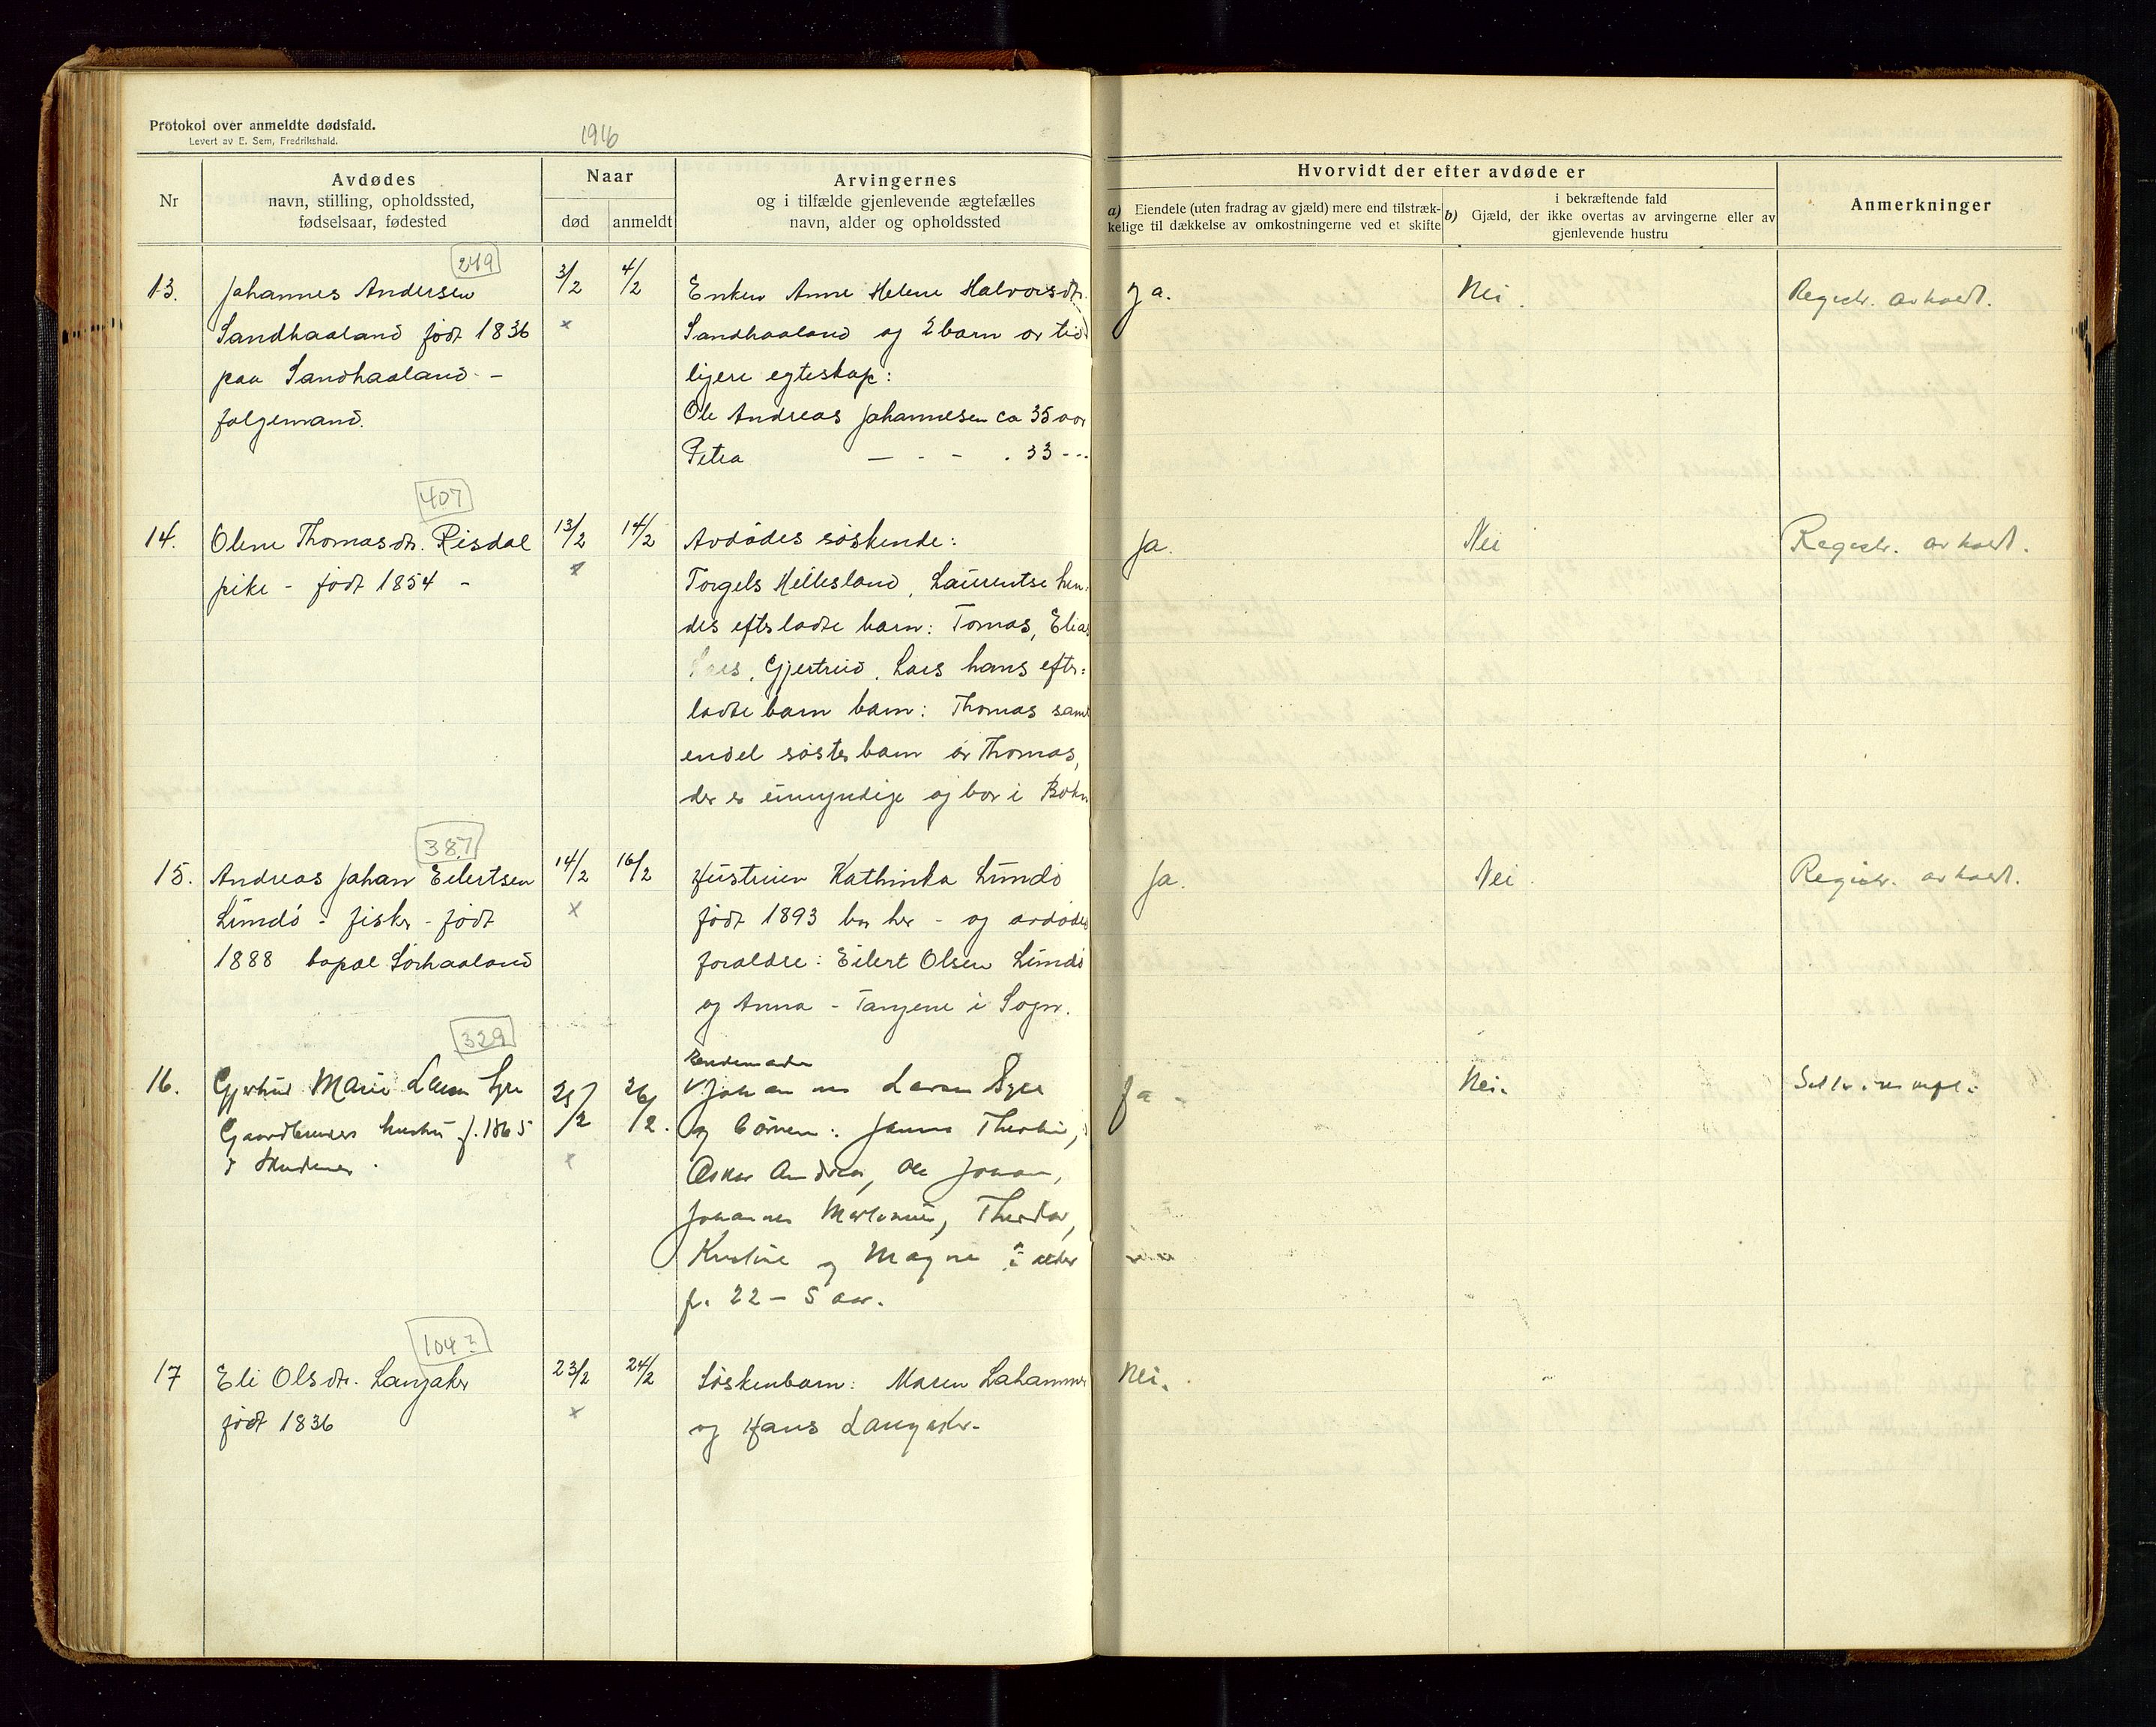 Protokol over anmeldte dødsfald.
Levert av E. Sem, Fredrikshald.
1916
Nr
Avdødes
navn, stilling, opholdssted,
fødselsaar, fødested
Naar
død
anmeldt
Arvingernes
og i tilfælde gjenlevende ægtefælles
navn, alder og opholdssted
Hvorvidt der efter avdøde er
a) Eiendele (uten fradrag av gjæld) mere end tilstræk-
kelige til dækkelse av omkostningerne ved et skifte
i bekræftende fald
b) Gjæld, der ikke overtas av arvingerne eller av
gjenlevende hustru
Anmerkninger
249
13. Johannes Andersen 3/2 4/2 Enken Anne Helene Halvorsdtr. Ja. Nei. Registr. avholdt.
Sandhaaland født 1836 x Sandhaaland og 2 barn av tid
paa Sandhaaland - ligere egteskap:
folgemand. Ole Andreas Johannesen ca 35 aar
Petra — - - . 33 - -
407
14. Olene Thomasdtr. Risdal 13/2 14/2 Avdødes søskende: Ja. Nei Registr. avholdt.
pike - født 1854 - x Torgels Hellesland, Lauentse hen
des efterladte barn: Tomas, Elias
Lars, Gjertrud, Lars hans efter=
ladte barn barn: Thomas samt
endel søsterbarn av Thomas,
der er umyndige og bor i Bokn
387
15. Andreas Johan Eilertsen 14/2 16/2 Hustruen Kathinka Lundø Ja. Nei. Registr. avholdt.
Lundø - fisker - født x født 1893 bor her - og avdødes
1888 bopæl Sørhaaland forældre: Eilert Olsen Lundø
og Anna - Tangene i Sogn.
329
16. Gjertrud Marie Larsen Syre 25/2 26/2. Johannes Larsen Syre Ja - Nei.
Gaardbrukers hustru f. 1865 og børnene: Janna Theodie,
i Skudenes. x Oskar Andreas, Ole Johan,
Johannes Martinius, Theodor,
Kristine og Magne i alder
fr. 22 - 5 aar.
104?
17 Eli Olsdtr. Langaker 23/2 24/2 Søskenbarn: Maren Lahammer Nei.
født 1836 x og Hans Langaker-